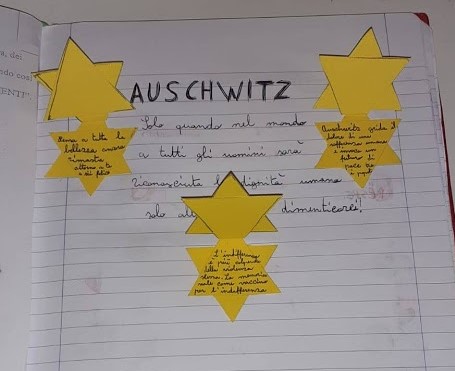 AUSCHWITZ
Solo quando nel mondo
a tutti gli uomini sarà
riconosciuta la dignità umana
solo all dimenticarci!
Pensa a tutta la
bellezza ancora
rimasta
attorno a te
e sii felice
Auschwitz grida il
dolore di una
sofferenza umana
e invoca un
futuro di
pace tra
i popoli
L'indifferenza
è più colpevole
della violenza
stessa. La memoria
vale come vaccino
per l'indifferenza